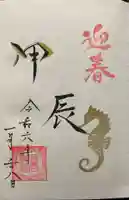 迎春
甲
辰
令和六年
一月廿八日